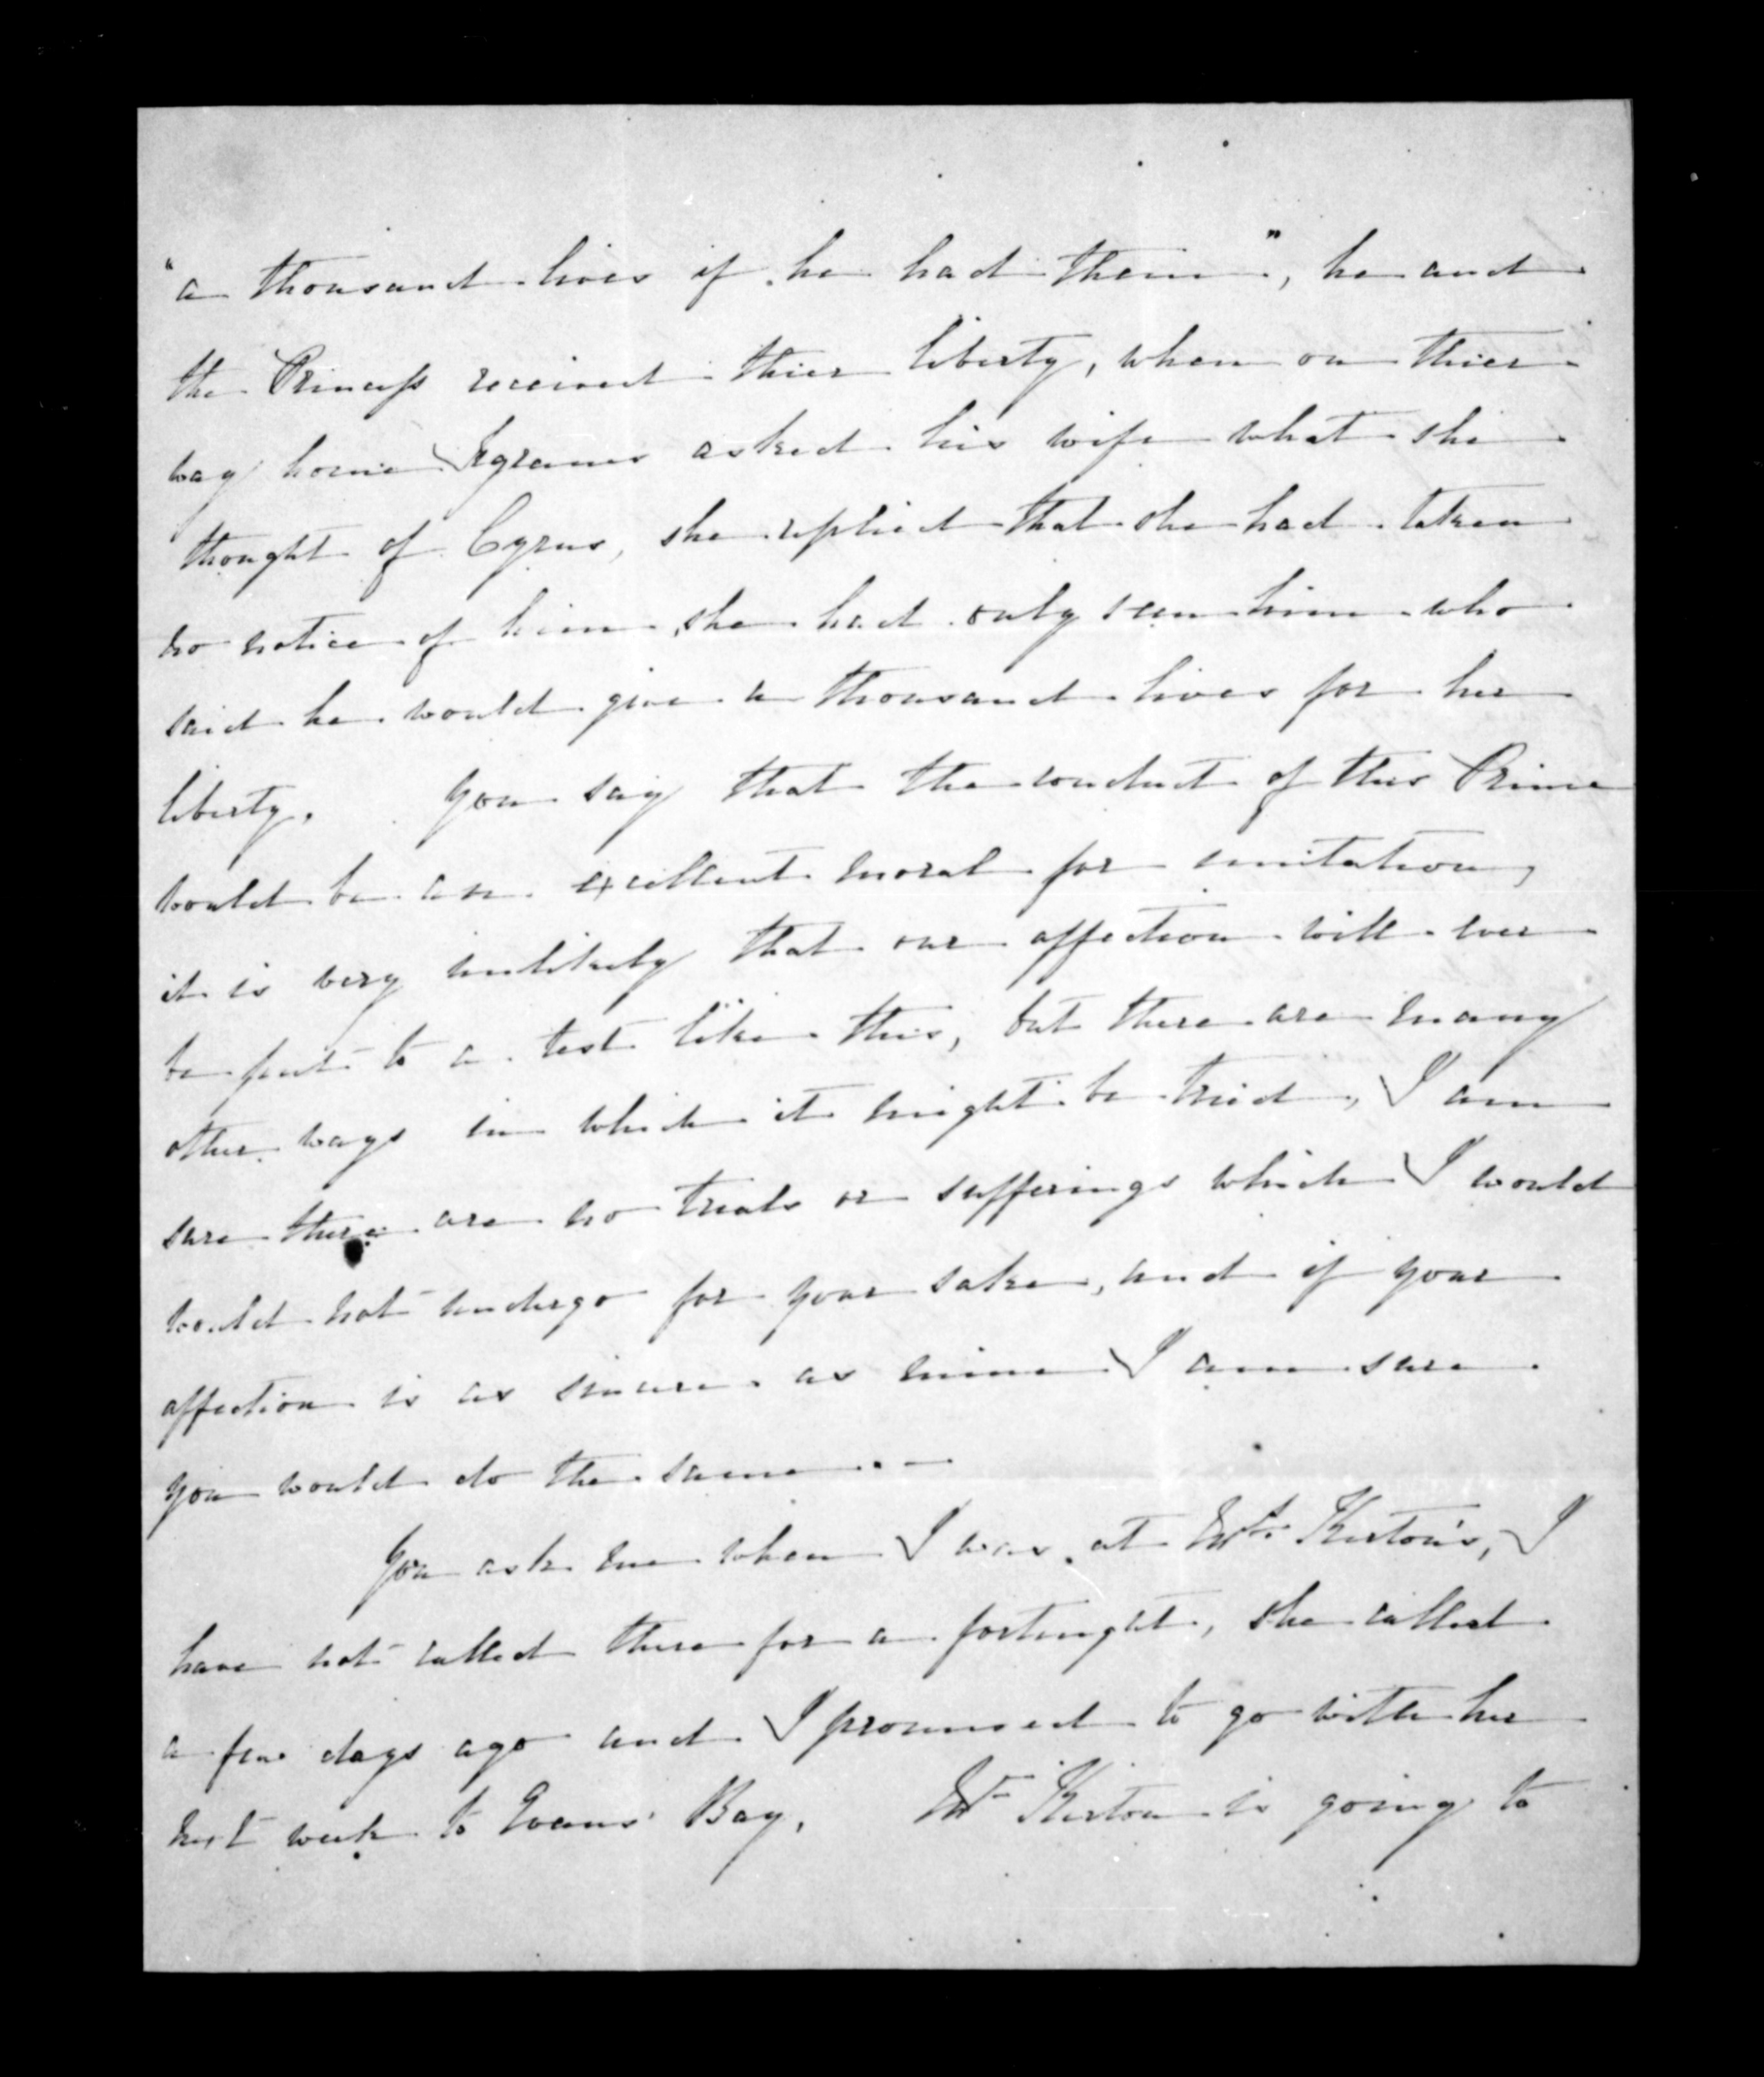 "a thousand lives if he had them", he and
the Princess received thier liberty, when on thier
way home Tygranes asked his wife what she
thought of Cyrus, she replied that she had taken
no notice of him, she had only seen him who
said he would give a thousand lives for her
liberty. You say that the conduct of this Prince
would be an excellent moral for imitation,
it is very unlikely that our affection will ever
be put to a test like this, but there are many
other ways in which it might be tried, I am
sure there are no trials or sufferings which I would
would not undergo for your sake, and if your
affection is as sincere as mine I am sure
you would do the same. —
You ask me when I was at Mrs Kirton's, I
have not called there for a fortnight, she called
a few days ago and I promised to go with her
next week to Evans' Bay. Mr Kirton is going to